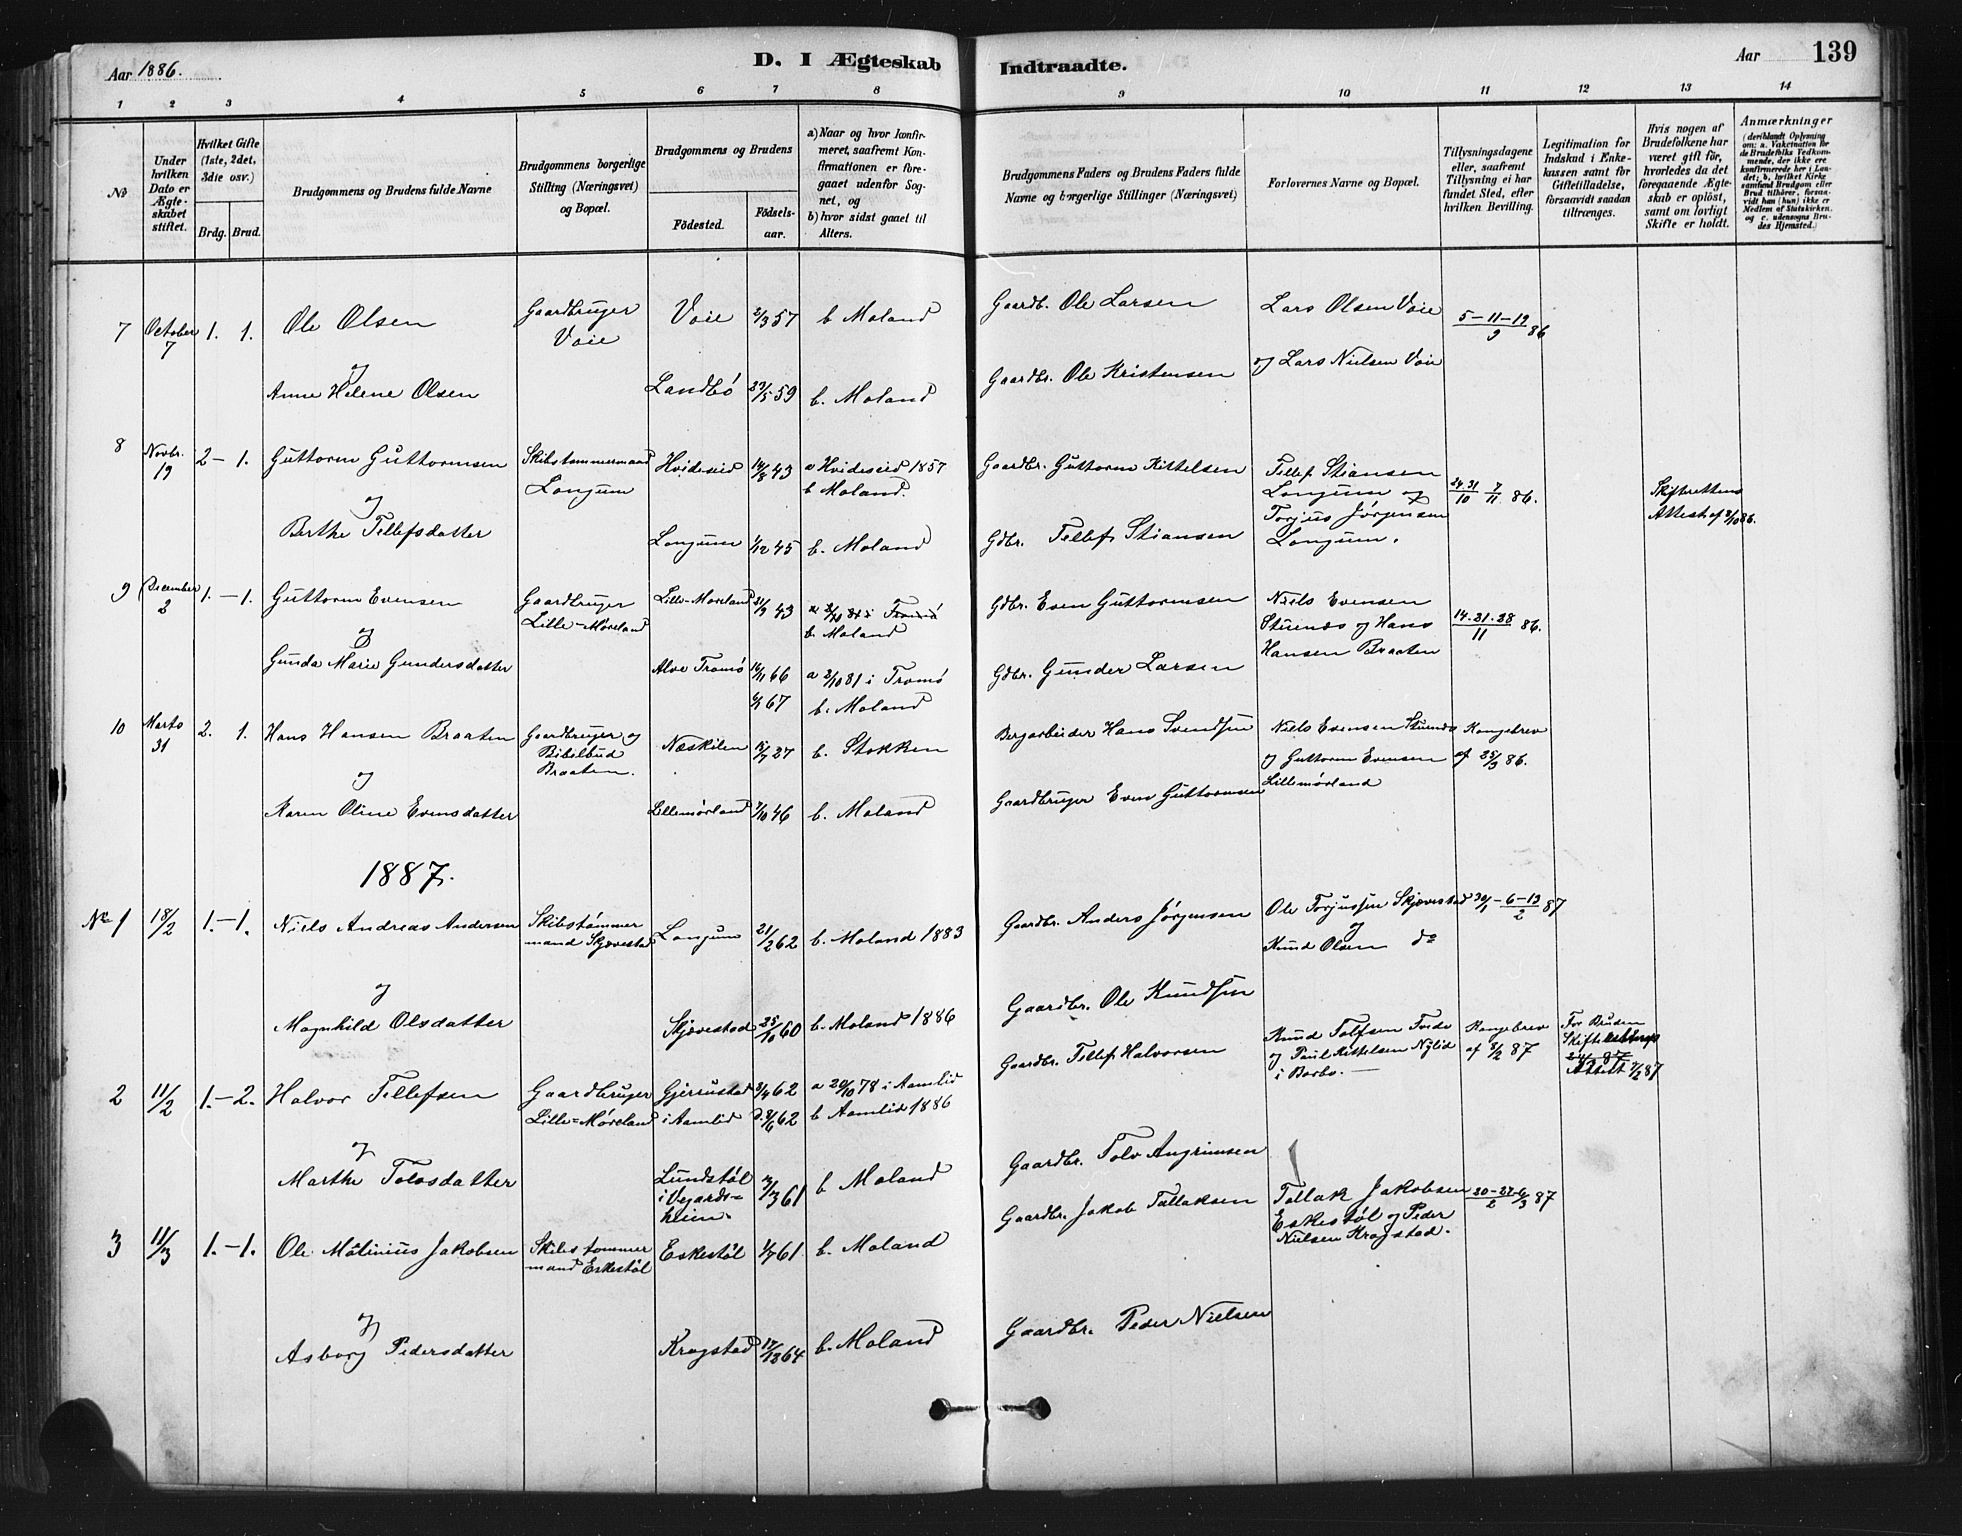 Aar 1886.
D. I Ægteskab Indtraadte.
Aar 139
1 2 3 4 5 6 7 8 9 10 11 12 13 14
No
Under hvilken Dato er Ægteskabet stiftet.
Hvilket Gifte (1ste, 2det, 3die osv.)
Brdg. Brud.
Brudgommens og Brudens fulde Navne
Brudgommens borgerlige Stilling (Næringsvei) og Bopæl.
Brudgommens og Brudens
Födested. Födselsaar.
a) Naar og hvor konfirmeret, saafremt Konfirmationen er foregaaet udenfor Sognet, og
b) hvor sidst gaaet til Alters.
Brudgommens Faders og Brudens Faders fulde Navne og borgerlige Stillinger (Næringsvei)
Forlovernes Navne og Bopæl.
Tillysningsdagene eller, saafremt Tillysning ei har fundet Sted, efter hvilken Bevilling.
Legitimation for Indskud i Enkekassen samt for Giftetilladelse, forsaavidt saadan tiltrænges.
Hvis nogen af Brudefolkene har været gift för, hvorledes da det foregaaende Ægteskab er oplöst, samt om lovligt Skifte er holdt.
Anmærkninger
(deriblandt Oplysning om: a. Vakcination for de Brudefolks Vedkommende, der ikke ere konfirmerede her i Landet; b. hvilket Kirkesamfund Brudgom eller Brud tilhörer, forsaavidt han (hun) ikke er Medlem af Statskirken, og c. udensogns Brudes Hjemsted.)
7 October 7 1. 1. Ole Olsen Gaardbruger Voie Voie 2/3 57 b Moland Gaardb. Ole Larsen Lars Olsen Voie 5-11-19/9 86
og
Anne Helene Olsen Landbö 27/5 59 b. Moland Gaardbr. Ole Kristensen og Lars Nielsen Voie
8 Novbr. 19 2 – 1. Guttorm Guttormsen Skibstømmermand Longum Hvideseid 14/8 43 a Hvideseid 1857 b Moland. Gaardbr. Guttorm Kittelsen Tellef Stiansen Longum og Torjus Jörgensen Longum. 24.31/10 7/11 86. Skifterettens Attest af
og
Berthe Tellefsdatter Longum 1/12 45 b. Moland Gdbr. Tellef Stiansen
9 December 2 1. – 1. Guttorm Evensen Gaardbruger Lille-Møreland Lille-Moreland 21/9 43 b. Moland Gdbr. Even Guttormsen Niels Evensen Stuenes og Hans Hansen Braaten 14.21.28/11 86.
og
Gunda Marie Gundersdatter Alve Tromö 16/11 66 a 2/10 81 i Tromö b. Moland Gdbr. Gunder Larsen
67
10 Marts 31 2. 1. Hans Hansen Braaten Gaardbruger og Bibelbud Braaten. Næskilen 27 b. Stokken Bergarbeider Hans Svendsen Niels Evensen Stuenes og Guttorm Evensen Lillemørland Kongebrev af 25/3 86.
og
Karen Oline Evensdatter Lillemørland 7/10 46 b. Moland Gaardbruger Even Guttormsen
1887.
No 1 18/2 1. – 1. Niels Andreas Andersen Skibstømmermand Skjævestad Longum 21/2 62 b. Moland 1883 Gaardbr. Anders Jørgensen Ole Torjussen Skjævestad og Knud Olsen do 30/1 – 6 – 13/2 87
og
Magnhild Olsdatter Skjævestad 25/10 60 b. Moland 1886 Gaardbr. Ole Knudsen
2 11/2 1. – 2. Halvor Tellefsen Gaardbruger Lille-Møreland Gjerrustad i Aamlid 3/4 62 d. 8/6 62 a 20/10 78 i Aamlid b Aamlid 1886 Gaardbr. Tellef Halvorsen Knud Tolfsen Tvede og Paul Kittelsen Nylid i Barbo. Kongebrev af 8/2 87 For Bruden Attest 7/2 87
og
Marthe Tolvsdatter Lundstöl i Vegardsheim. 7/3 61 b Moland Gaardbr. Tolv Angrimsen
3 11/3 1. – 1. Ole Mätinius Jakobsen Skibstømmermand Eskestöl Eskestöl 61 b. Moland Gaardbr. Jakob Tallaksen Tallak Jakobsen Eskestöl og Peder Nielsen Kragstad. 20-27/2 6/3 87
og
Asborg Pedersdatter Kragstad 17/12 64 b. Moland Gaardbr. Peder Nielsen